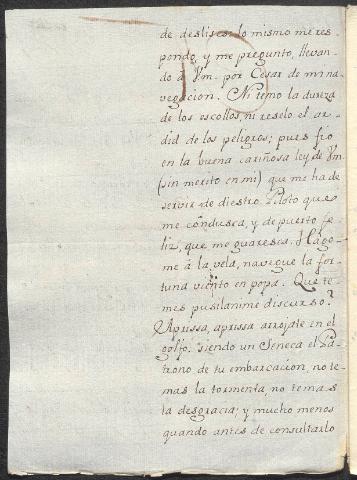 de deslises, lo mismo me res-
pondo, y me pregunto, llevan-
do à Vm. por Cesar de mi na-
vegacion. Ni temo la dureza
de los escollos, ni reselo el ar-
did de los peligros; pues fio
en la buena cariñosa ley de Vm
(sin merito en mi) que me ha de
servir de diestro Piloto que
me condusca, y de puerto fe-
liz, que me guaresca. Hago-
me à la vela, navegue la for-
tuna viento en popa. Que te-
mes pusilanime discurso?
Aprissa, aprissa arrojate en el
golfo, siendo un Seneca el Pa-
trono de tu embarcacion, no te-
mas la tormenta, no temas
la desgracia; y mucho menos
quando antes de consultarlo